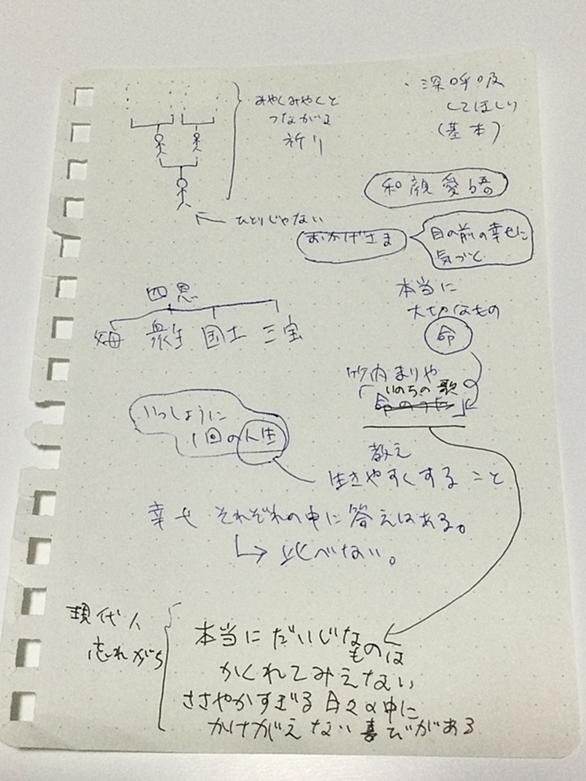 みゃくみゃくと
つながる
祈り
・深呼吸
してほしい
(基本)
和顔愛語
ひとりじゃない
おかげさま
目の前の幸せに
気づく
四恩
父母 衆生 国土 三宝
本当に
大切なもの
命
竹内まりや
「いのちの歌」
いっしょうに
1回の人生
教え
生きやすくすること
幸せ それぞれの中に答えはある。
↳ 比べない。
現代人
忘れがち
本当にだいじなものは
かくれてみえない
ささやかすぎる日々の中に
かけがえない喜びがある